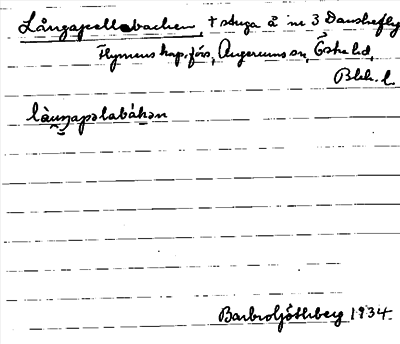 Långapellabacken, † stuga å nr 3 Danskefly
Hymens kap. förs, Augerums sn, Östra hd,
Blek. l.
làuŋapəlabákən
Barbro Göthberg 1934